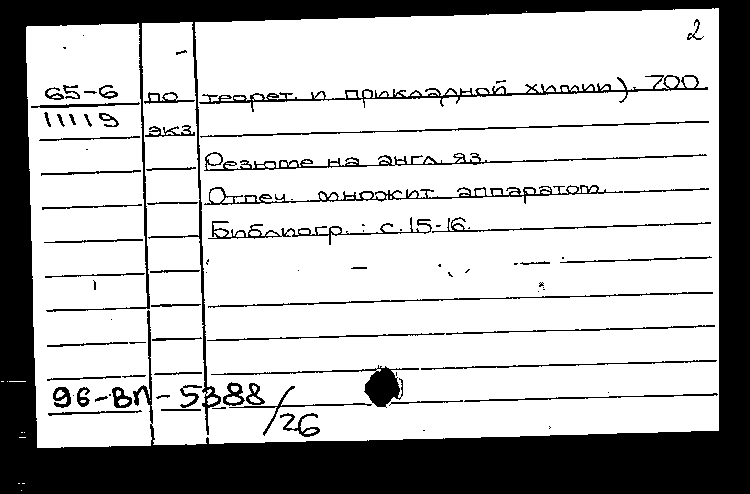 2
65-6 по теорет. и прикладной химии). 700
11119 экз.
Резюме на англ. яз.
Отпеч. множит. аппаратом.
Библиогр.: с. 15-16.
96-ВП-5388/26